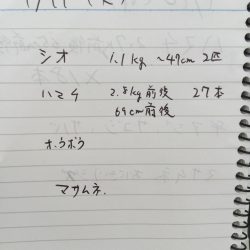 シオ 1.1kg ~47cm 2匹
ハマチ 2.8kg前後 27本
69cm前後
ホウボウ
マサムネ.